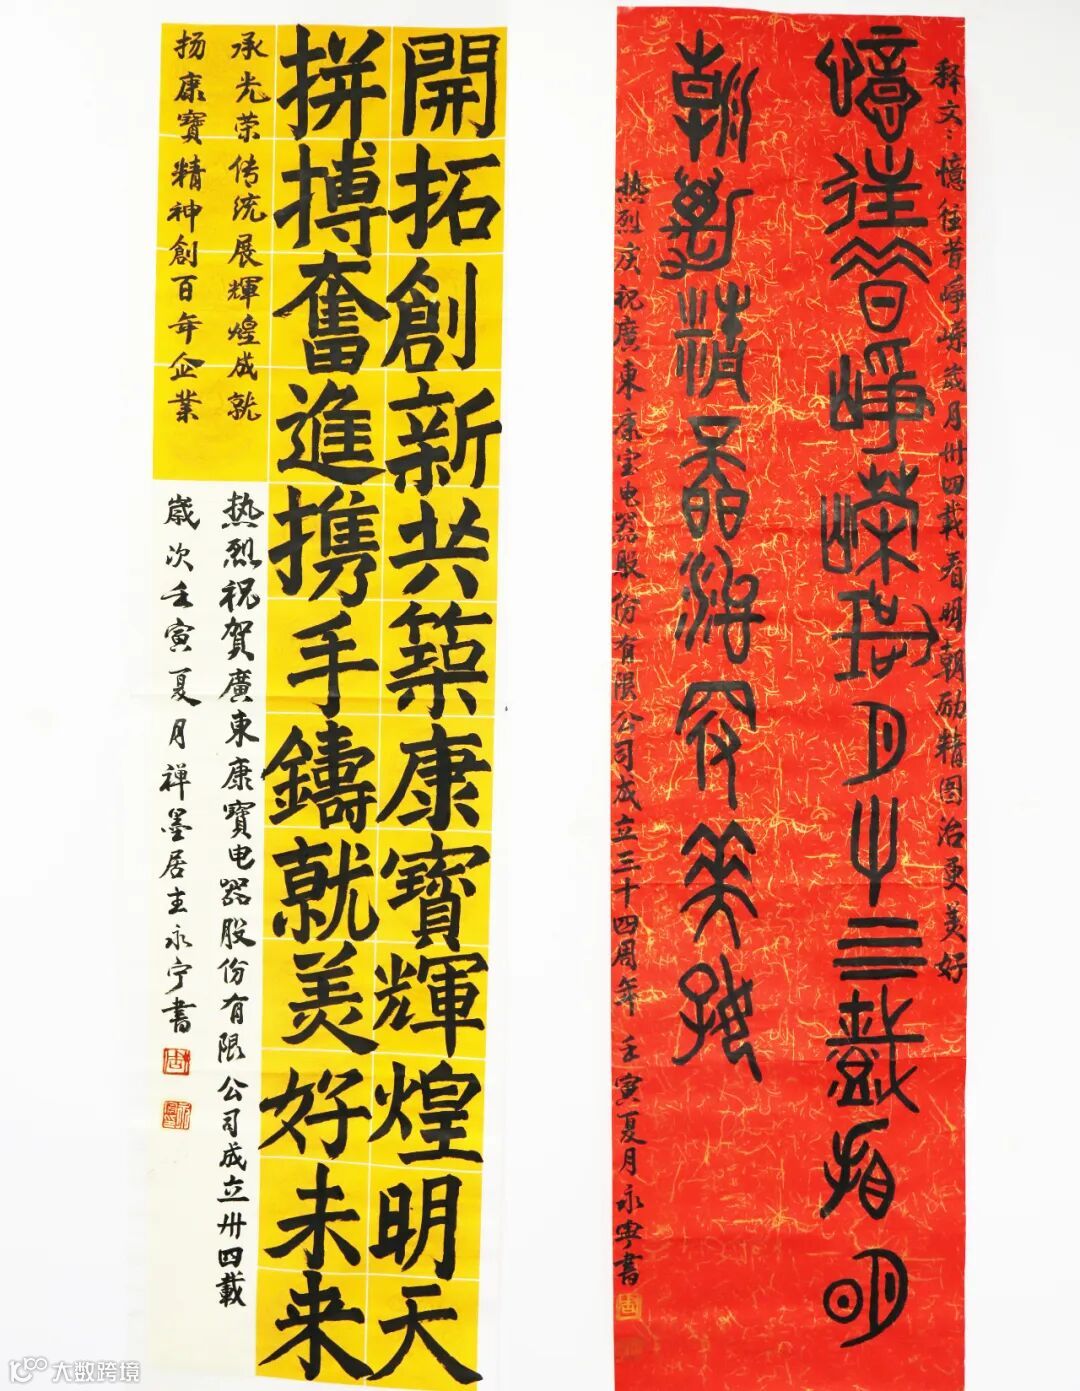 释文：憶往昔崢嶸歲月卅四載看明朝励精图治更美好
憶往昔崢嶸歲月卅亖載看明
朝勵精圖治更美好
热烈庆祝廣東康宝电器股份有限公司成立三十四周年 壬寅夏月永寧書
開拓創新共築康寶輝煌明天
拼搏奮進携手鑄就美好未来
承光荣传统展輝煌成就
扬康寶精神創百年企業
热烈祝賀廣東康寶电器股份有限公司成立卅四載
歲次壬寅夏月禅墨居主永宁書
大数跨境